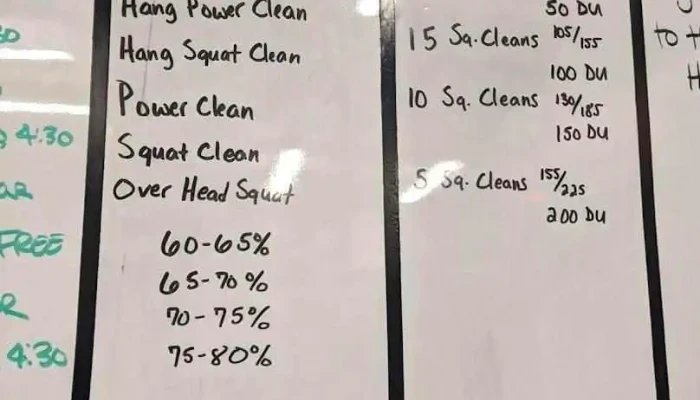 4:30
FREE
4:30
Hang Power Clean
Hang Squat Clean
Power Clean
Squat Clean
Over Head Squat
60-65%
65-70%
70-75%
75-80%
50 DU
15 Sq. Cleans 105/155
100 DU
10 Sq. Cleans 130/185
150 DU
5 Sq. Cleans 155/225
200 DU
to